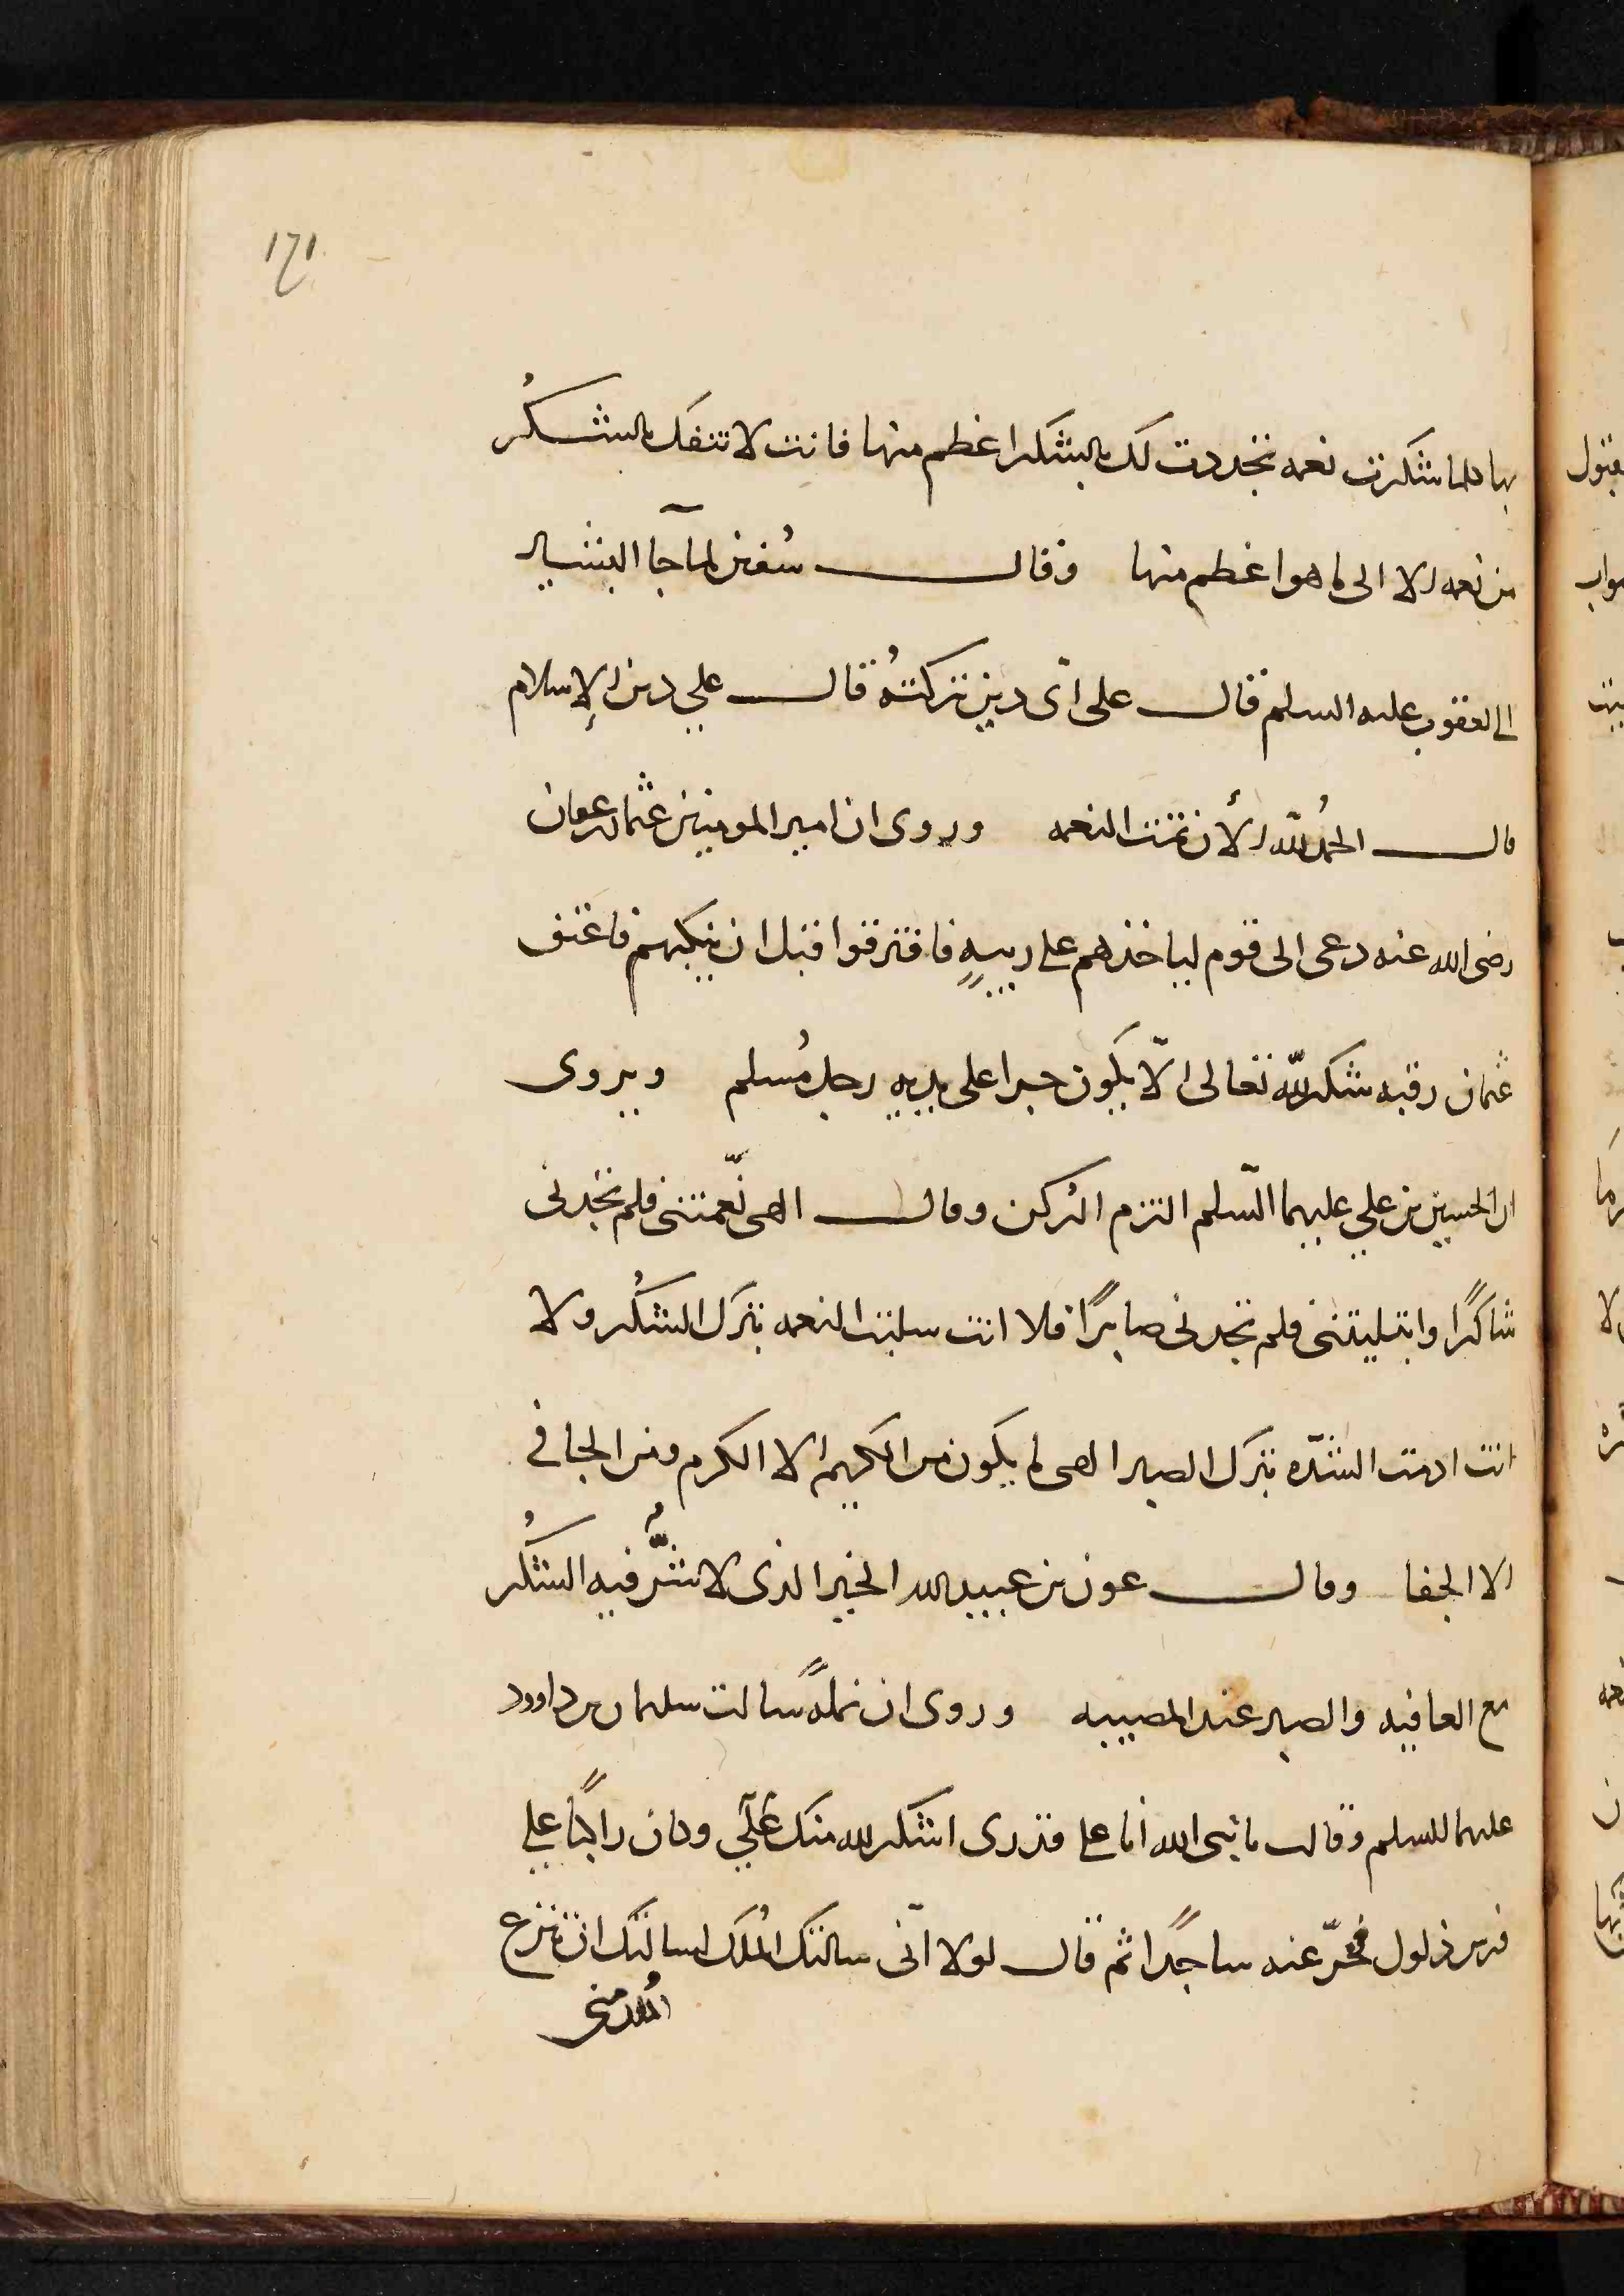 ١٦١
بها كلما شكرت نعمه تجددت لك بالشكر اعظم منها فانت لا تنفك بالشكر
من نعمه الا الى ما هو اعظم منها وقال سُفين لما جآ البشير
الى يعقوب عليه السلم قال على اىّ دين تركتهُ قال على دين الإسلام
قال الحمدُ لله الأن تمت النعمه وروى ان امير المومنين عثمان بن عفان
رضى الله عنه دعى الى قوم لياخذهم على ريبةٍ فافترقوا قبل ان ياتيهم فاعتق
عثمان رقبه شكر لله تعالى الّا يكون جرا على يديه رجل مُسلم ويروى
ان الحسين بن علي عليهما السّلم التزم الرُكن وقال الهى نعّمتنى فلم تجدنى
شاكرًا وابتليتنى فلم تجدنى صابرًا فلا انت سلبت النعمه بترك الشكُر ولا
انت ادمت الشدّه بترك الصبر الهى لم يكون من الكريم الا الكرم ومن الجافى
الا الجفا وقال عون بن عبيد الله الخير الذى لا شرُّ فيه الشكُر
مع العافيه والصبر عند المصيبه وروى ان نملهً سالت سليمان بن داوود
عليهما السلم وقالت يا نبى الله أنا على قدرى اشكر لله منك علي وكان راكبًا على
فرس ذلول فخرّ عنه ساجدًا ثم قال لولا انّى سالتك المُلك لسالتك ان تنزع